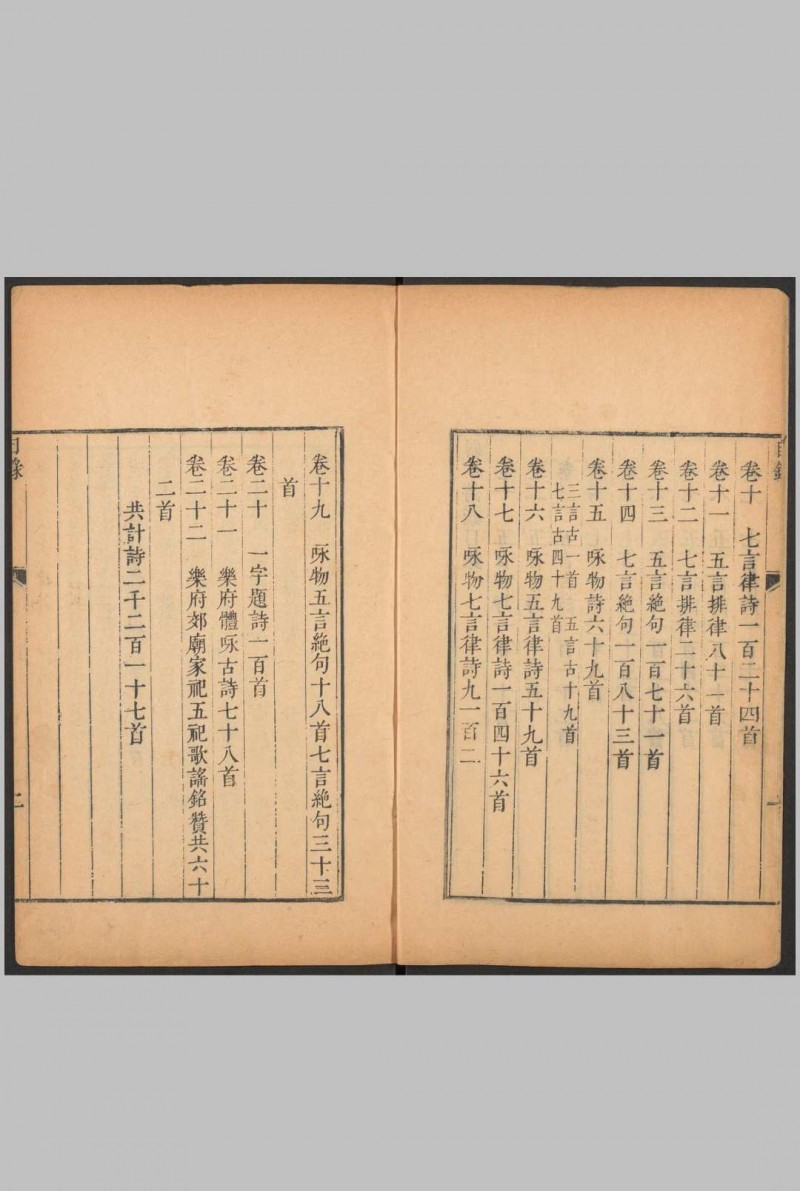 卷十　七言律詩一百二十四首
卷十一　五言排律八十一首
卷十二　七言排律二十六首
卷十三　五言絶句一百七十一首
卷十四　七言絶句一百八十三首
卷十五　咏物詩六十九首
三言古一首　五言古十九首
七言古四十九首
卷十六　咏物五言律詩五十九首
卷十七　咏物七言律詩一百四十六首
卷十八　咏物七言律詩九一百二
卷十九　咏物五言絶句十八首七言絶句三十三
首
卷二十　一字題詩一百首
卷二十一　樂府體咏古詩七十八首
卷二十二　樂府郊廟家祀五祀歌謠銘贊共六十
二首
共計詩二千二百一十七首
目錄
二